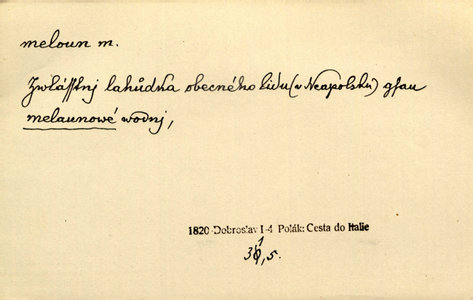 meloun m.
Zwlásstnj lahůdka obecného lidu (w Neapolsku) gsau
melaunowé wodnj,
1820 Dobroslav I-4 Polák: Cesta do Italie
1
30,5.